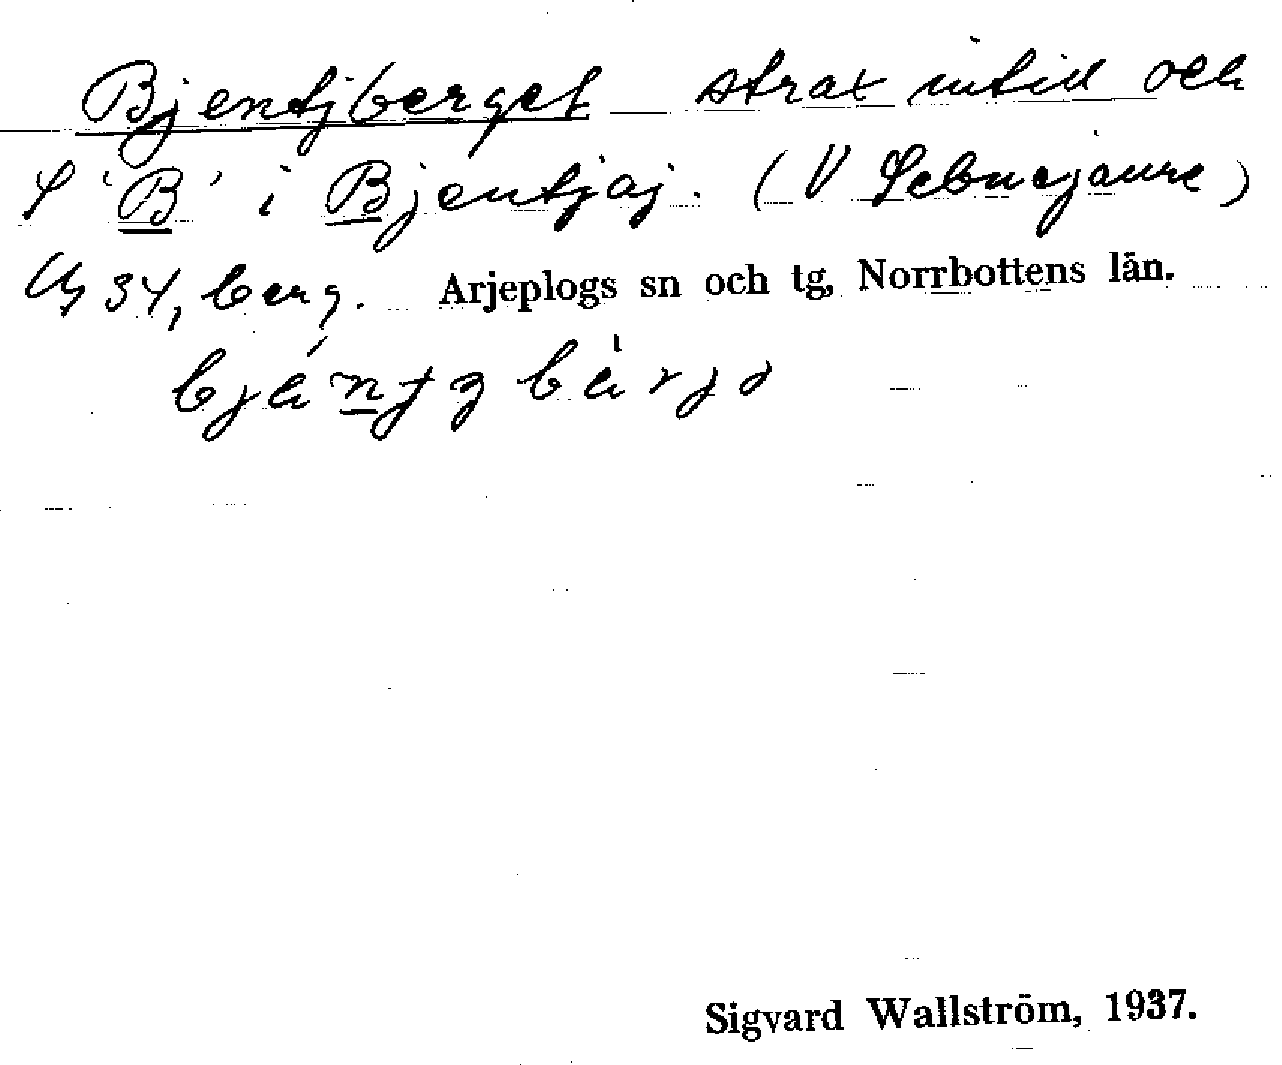 Bjentjberget strax intill och
S 'B' i Bjentjaj. (V Lebnejaure)
34, berg. Arjeplogs sn och tg, Norrbottens län.
Sigvard Wallström, 1937.